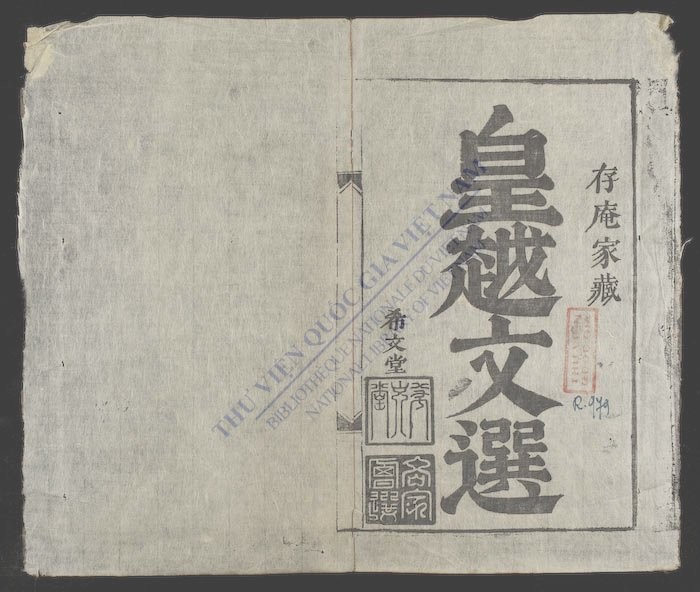 存庵家藏
皇越文選
希文堂
R.979
THƯ VIỆN QUỐC GIA VIỆT NAM
BIBLIOTHÈQUE NATIONALE DU VIETNAM
NATIONAL LIBRARY OF VIETNAM